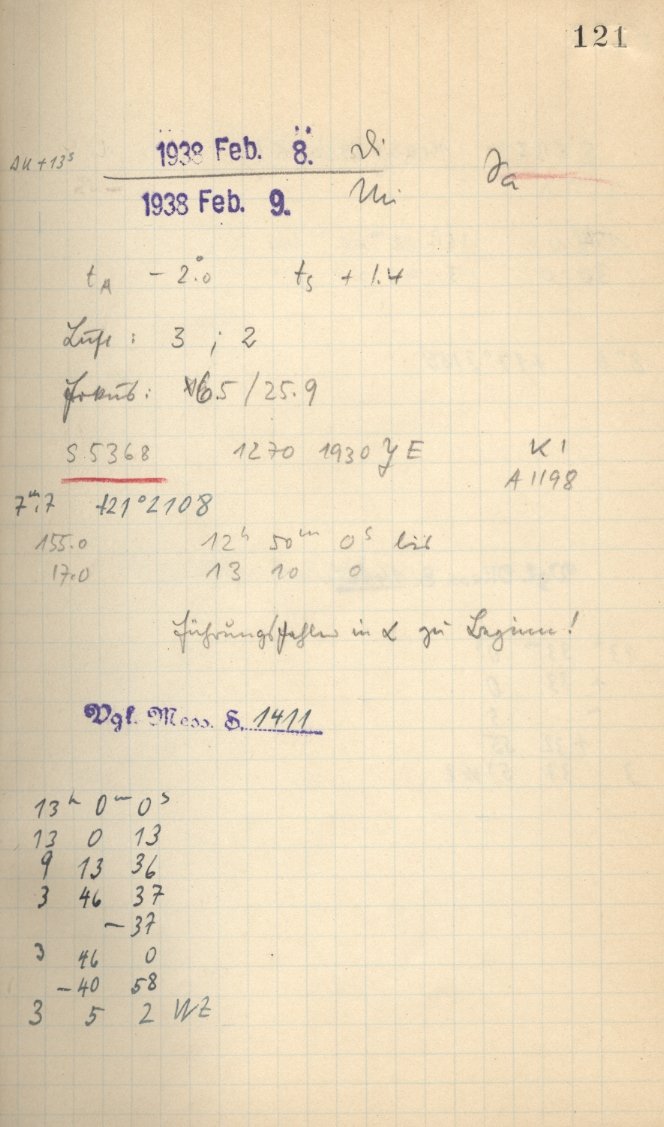 121
Δu + 13ˢ
1938 Feb. 8. Di
1938 Feb. 9. Mi
t_A − 2.°0 t_S + 1.4
Luft: 3 ; 2
Fokus: 6.5 / 25.9
S.5368 1270 1930 YE K 1
A 1198
7ᵐ.7 +21°2108
155.0 12ʰ 50ᵐ 0ˢ bis
17.0 13 10 0
Führungsfehler in α zu Beginn!
Vgl. Mess. S. 1411
13ʰ 0ᵐ 0ˢ
13 0 13
9 13 36
3 46 37
−37
3 46 0
−40 58
3 5 2 WZ